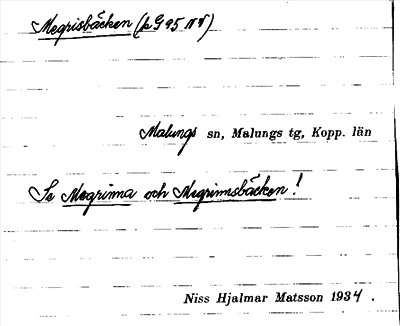 Megrisbäcken (k G 95 NV)
Malungs sn, Malungs tg, Kopp. län
Se Mogrinna och Megrinnsbäcken!
Niss Hjalmar Matsson 1934.